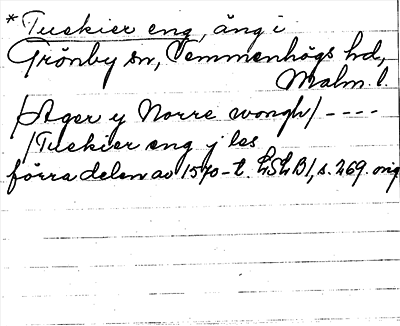 *Tuekier eng, äng i
Grönby sn, Vemmenhögs hd,
Malm. l.
/Ager y Norre wongh/ - - - -
/Tuekier eng j les
förra delen av 1570-t. LSLB/, s. 269. orig